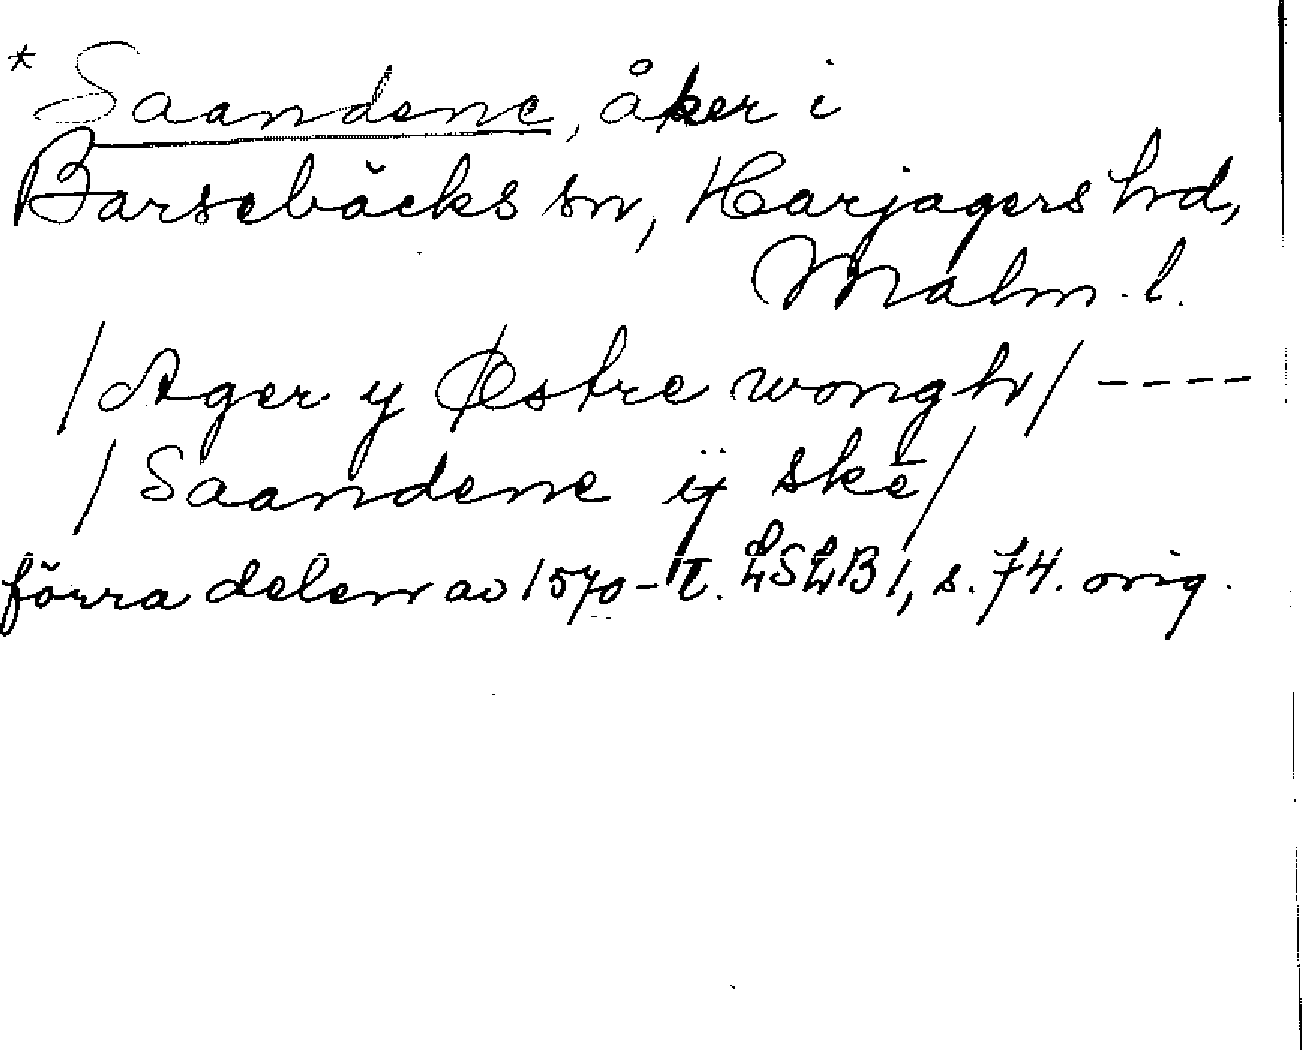 * Saandene, åker i
Barsebäcks sn, Harjagers hd,
Malm. l.
/Ager y Østre wongh/ ----
/Saandene ij skē/
förra delen av 1570-t. LSLB 1, s. 74. orig.